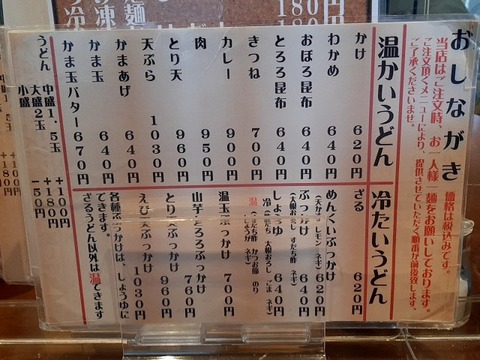 おしながき
価格は税込みです。
当店はご注文時、お一人様一麺をお願いしております。
ご注文頂くメニューにより、提供させていただく順番が前後致します。
ご了承くださいませ。
温かいうどん
かけ 620円
わかめ 640円
おぼろ昆布 640円
とろろ昆布 640円
きつね 700円
カレー 900円
肉 950円
とり天 960円
天ぷら 1030円
かまあげ 640円
かま玉 640円
かま玉バター 670円
うどん
中盛1.5玉 +100円
大盛2玉 +180円
小盛 -50円
冷たいうどん
ざる 620円
めんくいぶっかけ 620円
ぶっかけ 640円
しょうゆ 640円
温玉ぶっかけ 700円
山芋とろろぶっかけ 760円
とり天ぶっかけ 960円
えび天ぶっかけ 1030円
各種ぶっかけは、しょうゆに
できます。
ざるうどん以外は温できます
180円